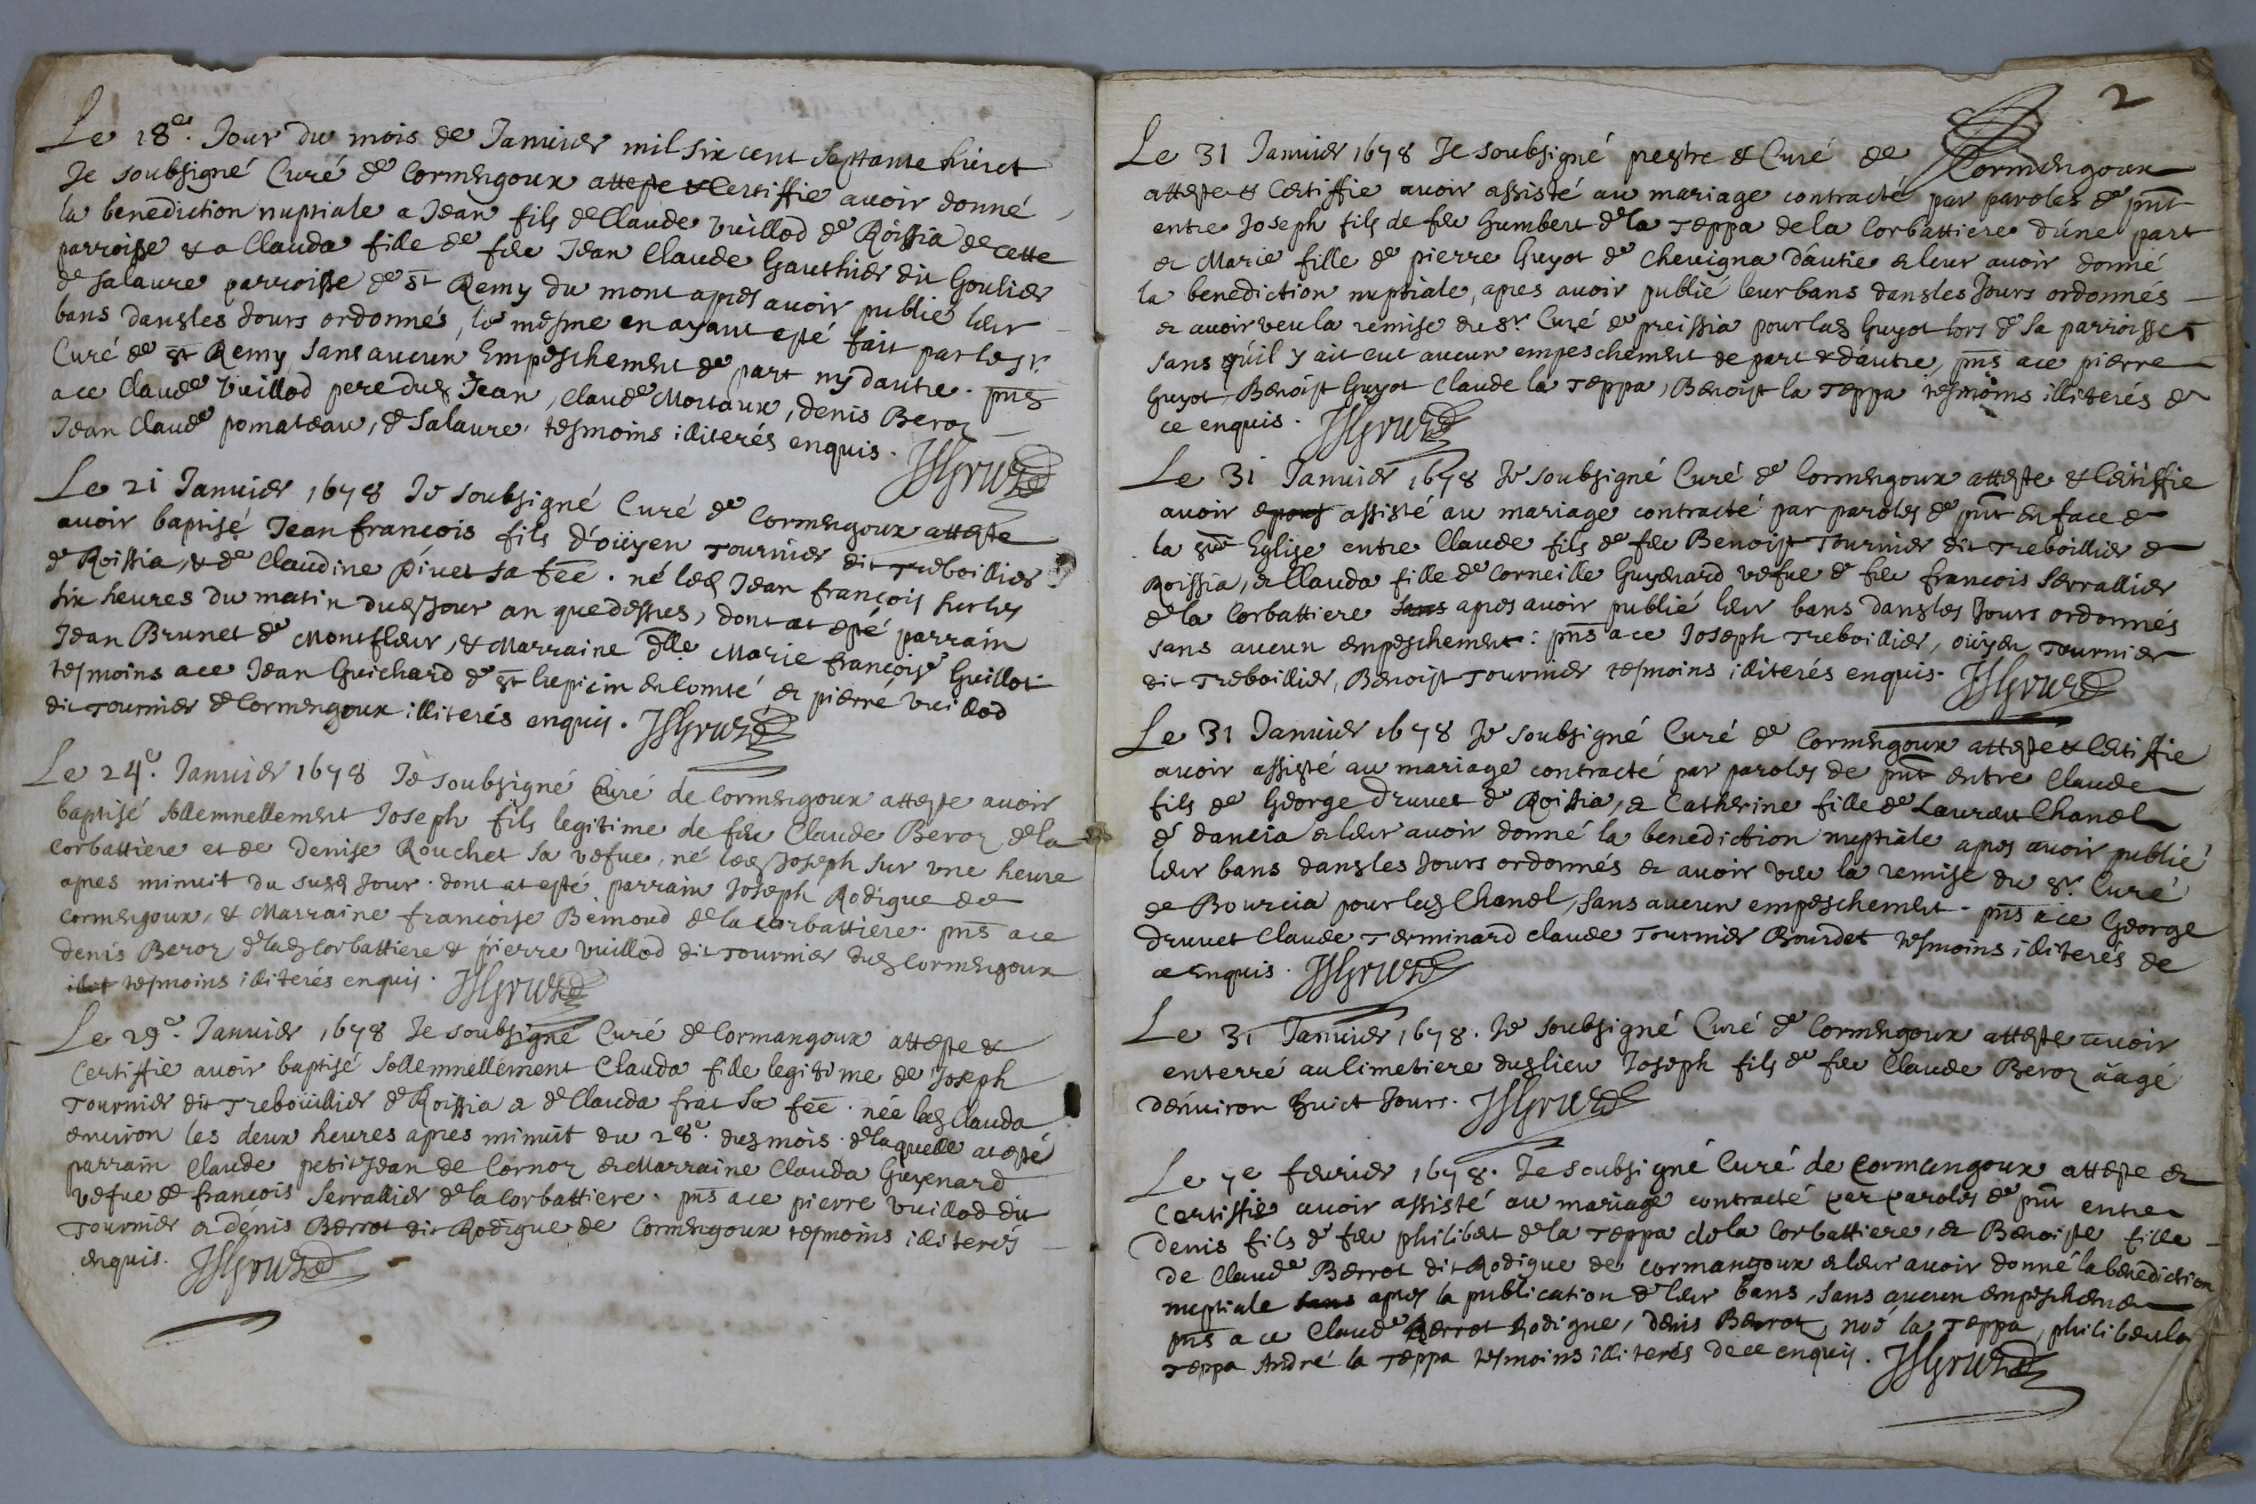 Le 18e. Jour du mois de Januier mil six cent septante huict
Je soubsigné Curé de Cormengoux atteste & Certiffie avoir donné
la benediction nuptiale a Jean fils de Claude Vuillod de Roissia de cette
parroisse & a Clauda fille de feu Jean Claude Gauthier dit Goulier
de Salaure parroisse de st Remy du mont apres avoir publié leur
bans dans les Jours ordonnés, le mesme en ayant esté fait par le sr.
Curé de st Remy sans aucun Empeschement de part ny dautre. pns
a ce Claude Vuillod pere dud Jean, Claude Mortaux, denis Beroz
Jean Claude pomateau, de Salaure, tesmoins illiterés enquis.
Le 21 Januier 1678 Je soubsigné Curé de Cormengoux atteste
avoir baptisé Jean francois fils d'oüyen Tournier dit Treboillier
de Roissia, & de Claudine piuet sa fēē. né led Jean françois sur les
six heures du matin dud Jour an que dessus, dont at esté parrain
Jean Brunet de Montfleur, & Marraine dlle Marie françoise Guillot
tesmoins a ce Jean Guichard de st lupicin en Comté et pierre Vuillod
dit Tournier de Cormengoux illiterés enquis.
Le 24e. Januier 1678 Je soubsigné Curé de Cormengoux atteste avoir
baptisé sollemnellement Joseph fils legitime de feu Claude Beroz de la
Corbattiere et de Denise Rouchet sa vefue, né led Joseph sur vne heure
apres minuit du susd Jour. dont at esté parrain Joseph Rodigue de
Cormengoux, & Marraine francoise Bemond de la Corbattiere. pns a ce
denis Beroz de lad Corbattiere & pierre vuillod dit Tournier dud Cormengoux
illet tesmoins illiterés enquis.
Le 29e. Januier 1678 Je soubsigné Curé de Cormangoux atteste &
Certiffie avoir baptisé sollemnellement Clauda fille legitime de Joseph
Tournier dit Treboüillier de Roissia & de Clauda frat sa fēē. née lad Clauda
enuiron les deux heures apres minuit du 28e. dud mois. de laquelle at esté
parrain Claude petitJean de Cornoz & Marraine Clauda Guyenard
vefue de françois Serrallier de la Corbattiere. pns a ce pierre Vuillod dit
Tournier & denis Berrot dit Rodigue de Cormengoux tesmoins illiterés
enquis.
2
Le 31 Januier 1678 Je soubsigné prestre & Curé de Cormengoux
atteste & Certiffie avoir assisté au mariage contracté par paroles de pnt
entre Joseph fils de feu humbert de la Teppa de la Corbattiere d'une part
et Marie fille de pierre Guyot de Cheuigna d'autre & leur avoir donné
la benediction nuptiale, apres avoir publié leur bans dans les Jours ordonnés
et avoir veu la remise du sr. Curé de preissia pour lad Guyot hors de sa parroisse
sans qu'il y ait eut aucun empeschement de part & dautre, pns a ce pierre
Guyot, Benoist Guyot Claude la Teppa, Benoist la Teppa tesmoins illiterés de
ce enquis.
Le 31 Januier 1678 Je soubsigné Curé de Cormengoux atteste & Certiffie
avoir espous assisté au mariage contracté par paroles de pnt en face de
la ste Eglise entre Claude fils de feu Benoist Tournier dit Treboillier de
Roissia, & Clauda fille de Corneille Guyenard vefue de feu francois Serrallier
de la Corbattiere sans apres avoir publié leur bans dans les Jours ordonnés
sans aucun empeschement: pns a ce Joseph Treboillier, oüyen Tournier
dit Treboillier, Benoist Tournier tesmoins illiterés enquis.
Le 31 Januier 1678 Je soubsigné Curé de Cormengoux atteste & Certiffie
avoir assisté au mariage contracté par paroles de pnt entre Claude
fils de George Druuet de Roissia, & Catherine fille de Laurent Chanel
de dancia & leur avoir donné la benediction nuptiale apres avoir publié
leur bans dans les Jours ordonnés & avoir veu la remise du sr. Curé
de Bourcia pour lad Chanel, sans aucun empeschement. pns a ce George
Druuet Claude Terminard claude Tournier Bourdet tesmoins illiterés de
ce enquis.
Le 31 Januier 1678. Je soubsigné Curé de Cormengoux atteste avoir
enterré au Cimetiere dud lieu Joseph fils de feu Claude Beroz aagé
d'enuiron huict Jours.
Le 7e feurier 1678. Je soubsigné Curé de Cormangoux atteste et
Certiffie avoir assisté au mariage contracté par paroles de pnt entre
Denis fils de feu philibert de la Teppa de la Corbattiere, & Benoiste fille
de Claude Berrot dit Rodigue de Cormangoux & leur avoir donné la benediction
nuptiale sans apres la publication de leur bans, sans aucun empeschement
pns a ce Claude Berrot Rodigue, Denis Berrot, noé la Teppa, philibert la
Teppa André la Teppa tesmoins illiterés de ce enquis.